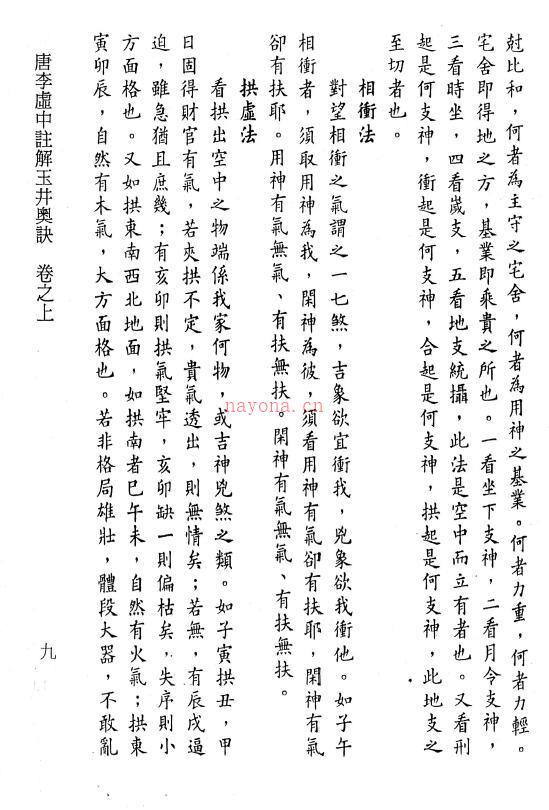 尅比和，何者為主守之宅舍，何者為用神之基業。何者力重，何者力輕。
宅舍即得地之方，基業即乘貴之所也。一看坐下支神，二看月令支神，
三看時坐，四看歲支，五看地支統攝，此法是空中而立有者也。又看刑
起是何支神，衝起是何支神，合起是何支神，拱起是何支神，此地支之
至切者也。
相衝法
對望相衝之氣謂之一七煞，吉象欲宜衝我，兇象欲我衝他。如子午
相衝者，須取用神為我，閑神為彼，須看用神有氣卻有扶耶，閑神有氣
卻有扶耶。用神有氣無氣、有扶無扶。閑神有氣無氣、有扶無扶。
拱虛法
看拱出空中之物端係我家何物，或吉神兇煞之類。如子寅拱丑，甲
日固得財官有氣，若夾拱不定，貴氣透出，則無情矣；若無，有辰戌逼
迫，雖急猶且庶幾；有亥卯則拱氣堅牢，亥卯缺一則偏枯矣，失序則小
方面格也。又如拱東南西北地面，如拱南者巳午未，自然有火氣；拱東
寅卯辰，自然有木氣，大方面格也。若非格局雄壯，體段大器，不敢亂
唐李虛中註解玉井奧訣 卷之上
九
nayona.cn